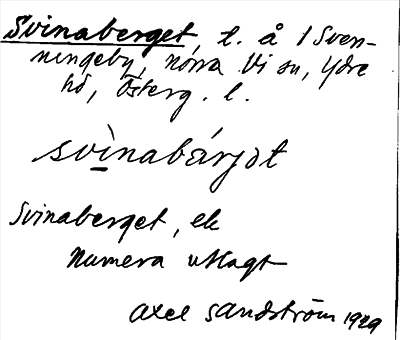 Svinaberget, t. å 1 Sven-
ningeby, norra Vi sn, Ydre
hd, Österg. l.
svìnabärjət
Svinaberget, ek
Numera utlagt
Axel Sandström 1929